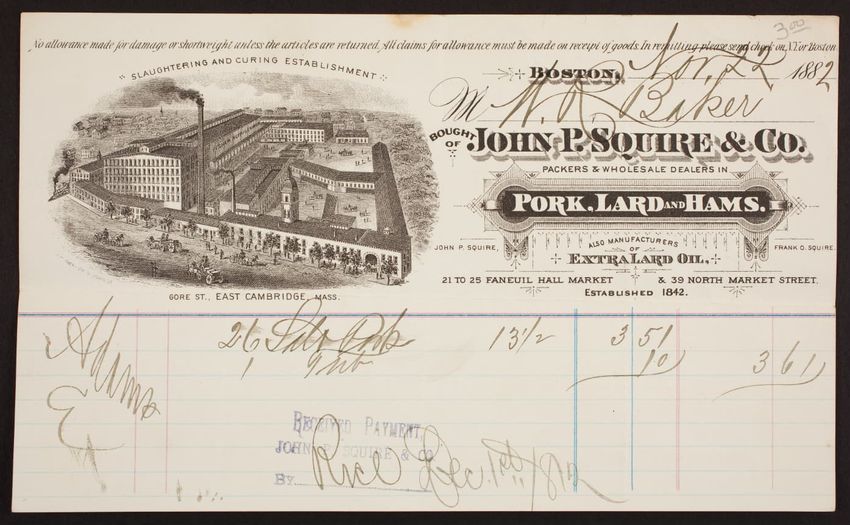 3 00
No allowance made for damage or shortweight unless the articles are returned. All claims for allowance must be made on receipt of goods. In remitting please send check on N.Y. or Boston
SLAUGHTERING AND CURING ESTABLISHMENT
GORE ST., EAST CAMBRIDGE, MASS.
BOSTON, Nov. 22 1882
M W. R. Baker
BOUGHT OF JOHN P. SQUIRE & CO.
PACKERS & WHOLESALE DEALERS IN
PORK, LARD AND HAMS.
JOHN P. SQUIRE, ALSO MANUFACTURERS OF FRANK O. SQUIRE.
EXTRA LARD OIL,
21 TO 25 FANEUIL HALL MARKET & 39 NORTH MARKET STREET.
ESTABLISHED 1842.
Adams
Ex
26 Salt Pork 13 1/2 3 51
1 10 3 61
RECEIVED PAYMENT,
JOHN P. SQUIRE & CO
BY Rice Dec. 1st 1882